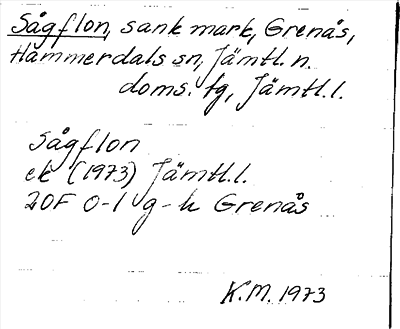 Sågflon, sank mark, Grenås,
Hammerdals sn, Jämtl. n.
doms. tg, Jämtl. l.
Sågflon
ek (1973) Jämtl. l.
20F 0-1 g-h Grenås
K.M. 1973